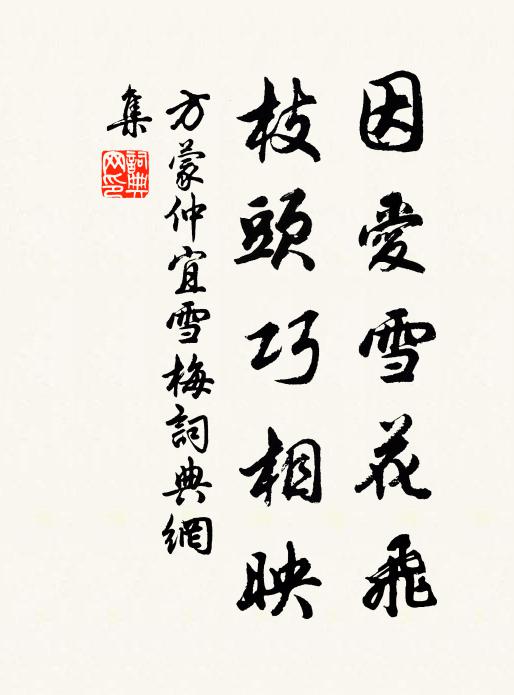 因愛雪花飛
枝頭巧相映
方蒙仲宜雪梅詞典網
集
詞典
网印